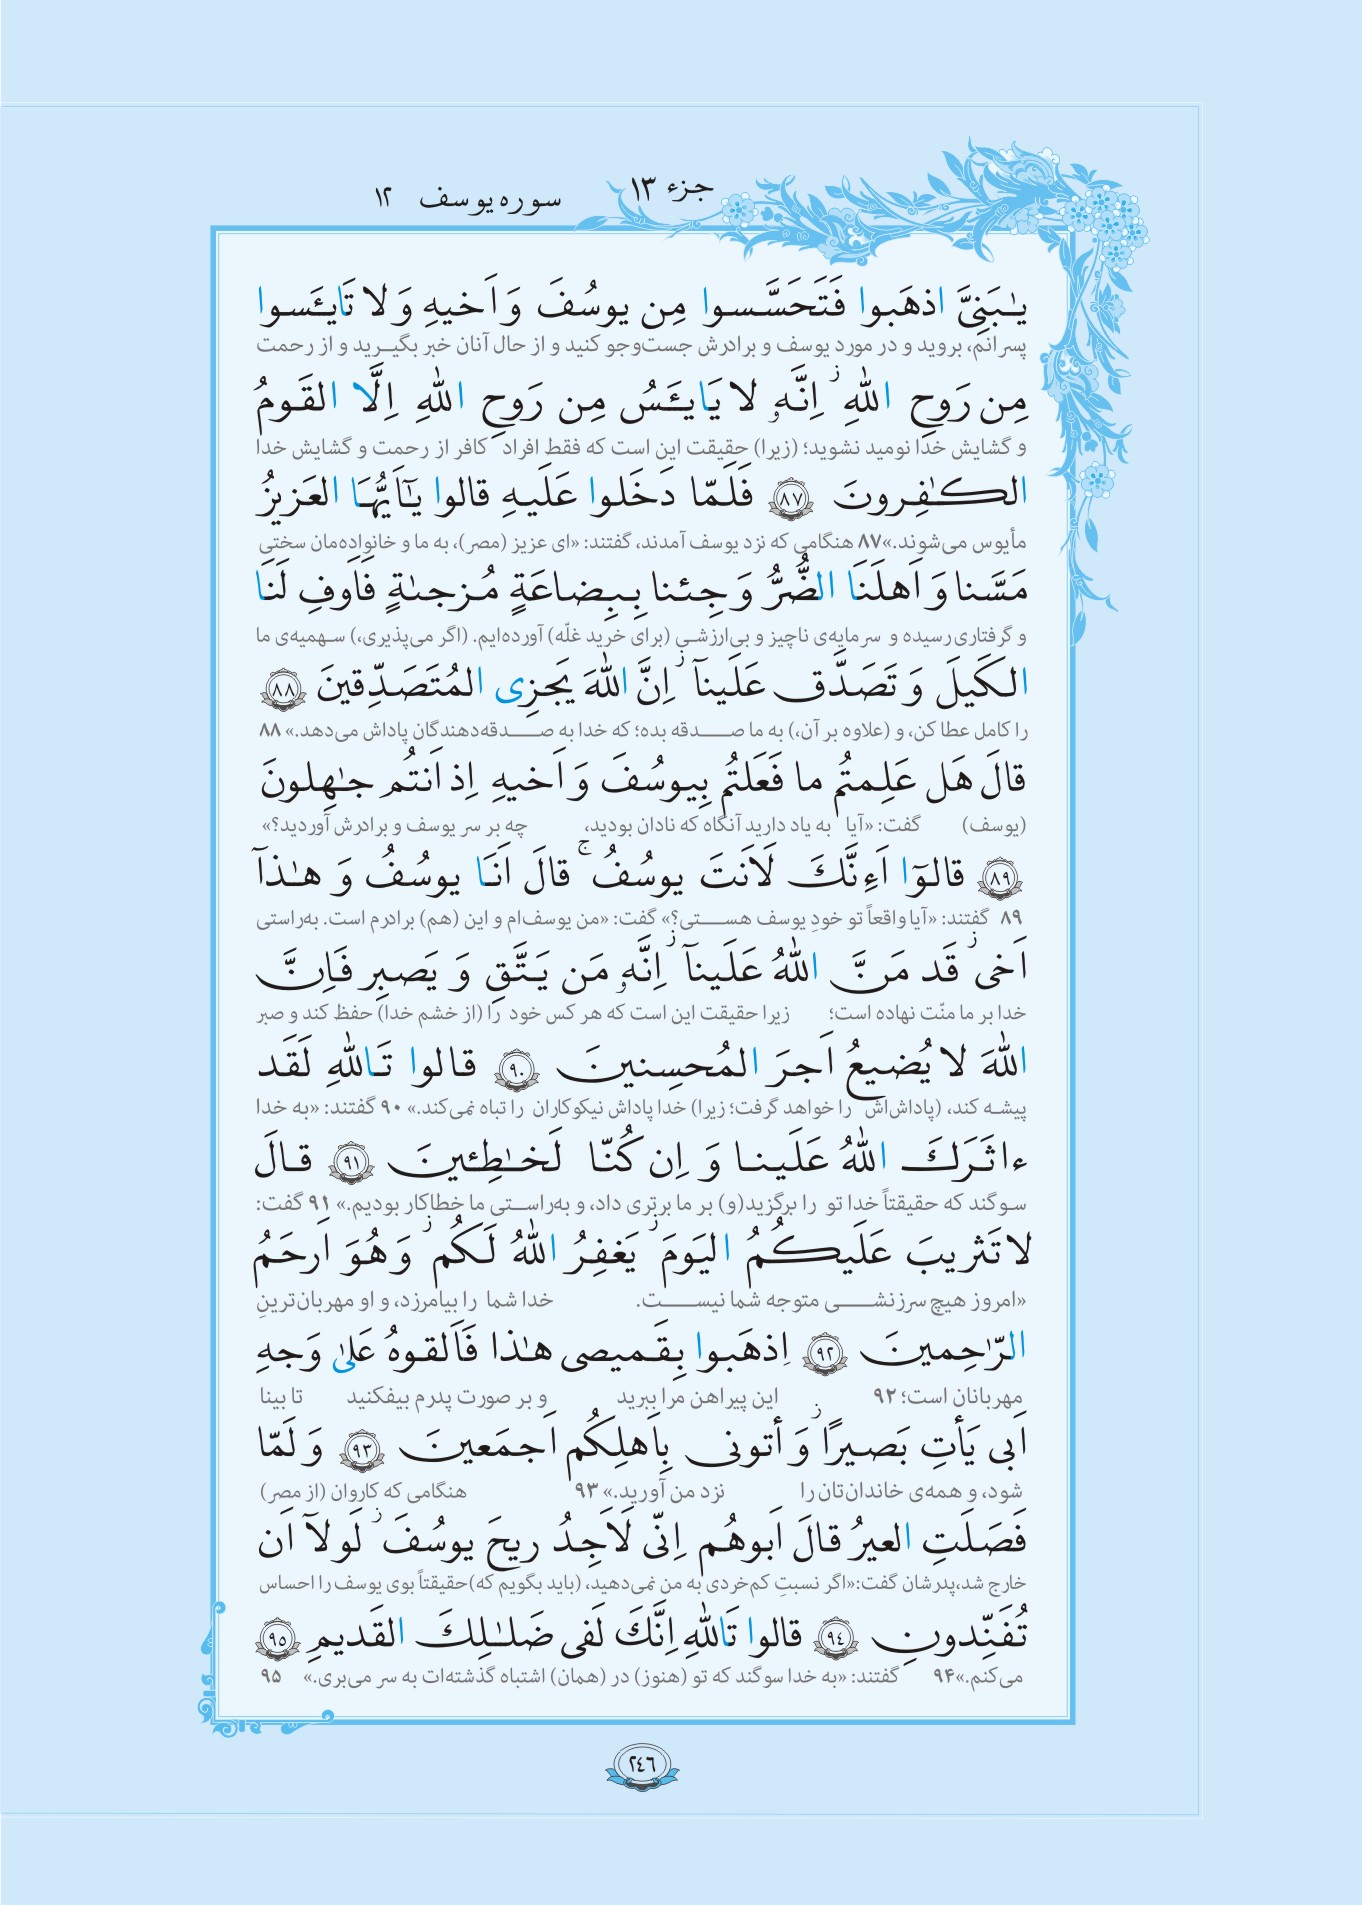 جزء ۱۳
سوره یوسف ۱۲
یـٰبَنِیَّ اذهَبوا فَتَحَسَّسوا مِن یوسُفَ وَ اَخیهِ وَ لا تَایـَٔسوا
پسرانم، بروید و در مورد یوسف و برادرش جست‌وجو کنید و از حال آنان خبر بگیـرید و از رحمت
مِن رَوحِ اللهِ ز اِنَّهو لا یَایـَٔسُ مِن رَوحِ اللهِ اِلَّا القَومُ
و گشایش خدا نومید نشوید؛ (زیرا) حقیقت این است که فقط افراد کافر از رحمت و گشایش خدا
الکـٰفِرونَ ﴿۸۷﴾ فَلَمّا دَخَلوا عَلَیهِ قالوا یـٰٓاَیُّهَا العَزیزُ
مأیوس می‌شوند.» ۸۷ هنگامی که نزد یوسف آمدند، گفتند: «ای عزیز (مصر)، به ما و خانواده‌مان سختی
مَسَّنا وَ اَهلَنَا الضُّرُّ وَ جِئنا بِبِضاعَةٍ مُزجىٰةٍ فَاَوفِ لَنَا
و گرفتاری رسیده و سرمایه‌ی ناچیز و بی‌ارزشی (برای خرید غلّه) آورده‌ایم. (اگر می‌پذیری،) سهمیه‌ی ما
الکَیلَ وَ تَصَدَّق عَلَینآ ز اِنَّ اللهَ یَجزِی المُتَصَدِّقینَ ﴿۸۸﴾
را کامل عطا کن، و (علاوه بر آن،) به ما صدقه بده؛ که خدا به صدقه‌دهندگان پاداش می‌دهد.» ۸۸
قالَ هَل عَلِمتُم ما فَعَلتُم بِیوسُفَ وَ اَخیهِ اِذ اَنتُم جـٰهِلونَ
(یوسف) گفت: «آیا به یاد دارید آنگاه که نادان بودید، چه بر سر یوسف و برادرش آوردید؟»
﴿۸۹﴾ قالوٓا اَءِنَّكَ لَاَنتَ یوسُفُ ج قالَ اَنَا یوسُفُ وَ هـٰذآ
۸۹ گفتند: «آیا واقعاً تو خودِ یوسف هستی؟» گفت: «من یوسف‌ام و این (هم) برادرم است. به‌راستی
اَخی ز قَد مَنَّ اللهُ عَلَینآ ز اِنَّهو مَن یَتَّقِ وَ یَصبِر فَاِنَّ
خدا بر ما منّت نهاده است؛ زیرا حقیقت این است که هر کس خود را (از خشم خدا) حفظ کند و صبر
اللهَ لا یُضیعُ اَجرَ المُحسِنینَ ﴿۹۰﴾ قالوا تَاللهِ لَقَد
پیشه کند، (پاداش‌اش را خواهد گرفت؛ زیرا) خدا پاداش نیکوکاران را تباه نمی‌کند.» ۹۰ گفتند: «به خدا
ءاثَرَكَ اللهُ عَلَینا وَ اِن کُنّا لَخـٰطِـٔینَ ﴿۹۱﴾ قالَ
سوگند که حقیقتاً خدا تو را برگزید(و) بر ما برتری داد، و به‌راستی ما خطاکار بودیم.» ۹۱ گفت:
لا تَثریبَ عَلَیکُمُ الیَومَ ز یَغفِرُ اللهُ لَکُم ز وَ هُوَ اَرحَمُ
«امروز هیچ سرزنشی متوجه شما نیست. خدا شما را بیامرزد، و او مهربان‌ترینِ
الرّٰحِمینَ ﴿۹۲﴾ اِذهَبوا بِقَمیصی هـٰذا فَاَلقوهُ عَلىٰ وَجهِ
مهربانان است؛ ۹۲ این پیراهن مرا ببرید و بر صورت پدرم بیفکنید تا بینا
اَبی یَأتِ بَصیرًا ز وَ أتونی بِاَهلِکُم اَجمَعینَ ﴿۹۳﴾ وَ لَمّا
شود، و همه‌ی خاندان‌تان را نزد من آورید.» ۹۳ هنگامی که کاروان (از مصر)
فَصَلَتِ العیرُ قالَ اَبوهُم اِنّی لَاَجِدُ ریحَ یوسُفَ ز لَولآ اَن
خارج شد،پدرشان گفت:«اگر نسبتِ کم‌خردی به من نمی‌دهید، (باید بگویم که)حقیقتاً بوی یوسف را احساس
تُفَنِّدونِ ﴿۹۴﴾ قالوا تَاللهِ اِنَّكَ لَفی ضَلـٰلِكَ القَدیمِ ﴿۹۵﴾
می‌کنم.» ۹۴ گفتند: «به خدا سوگند که تو (هنوز) در (همان) اشتباه گذشته‌ات به سر می‌بری.» ۹۵
۲۴۶